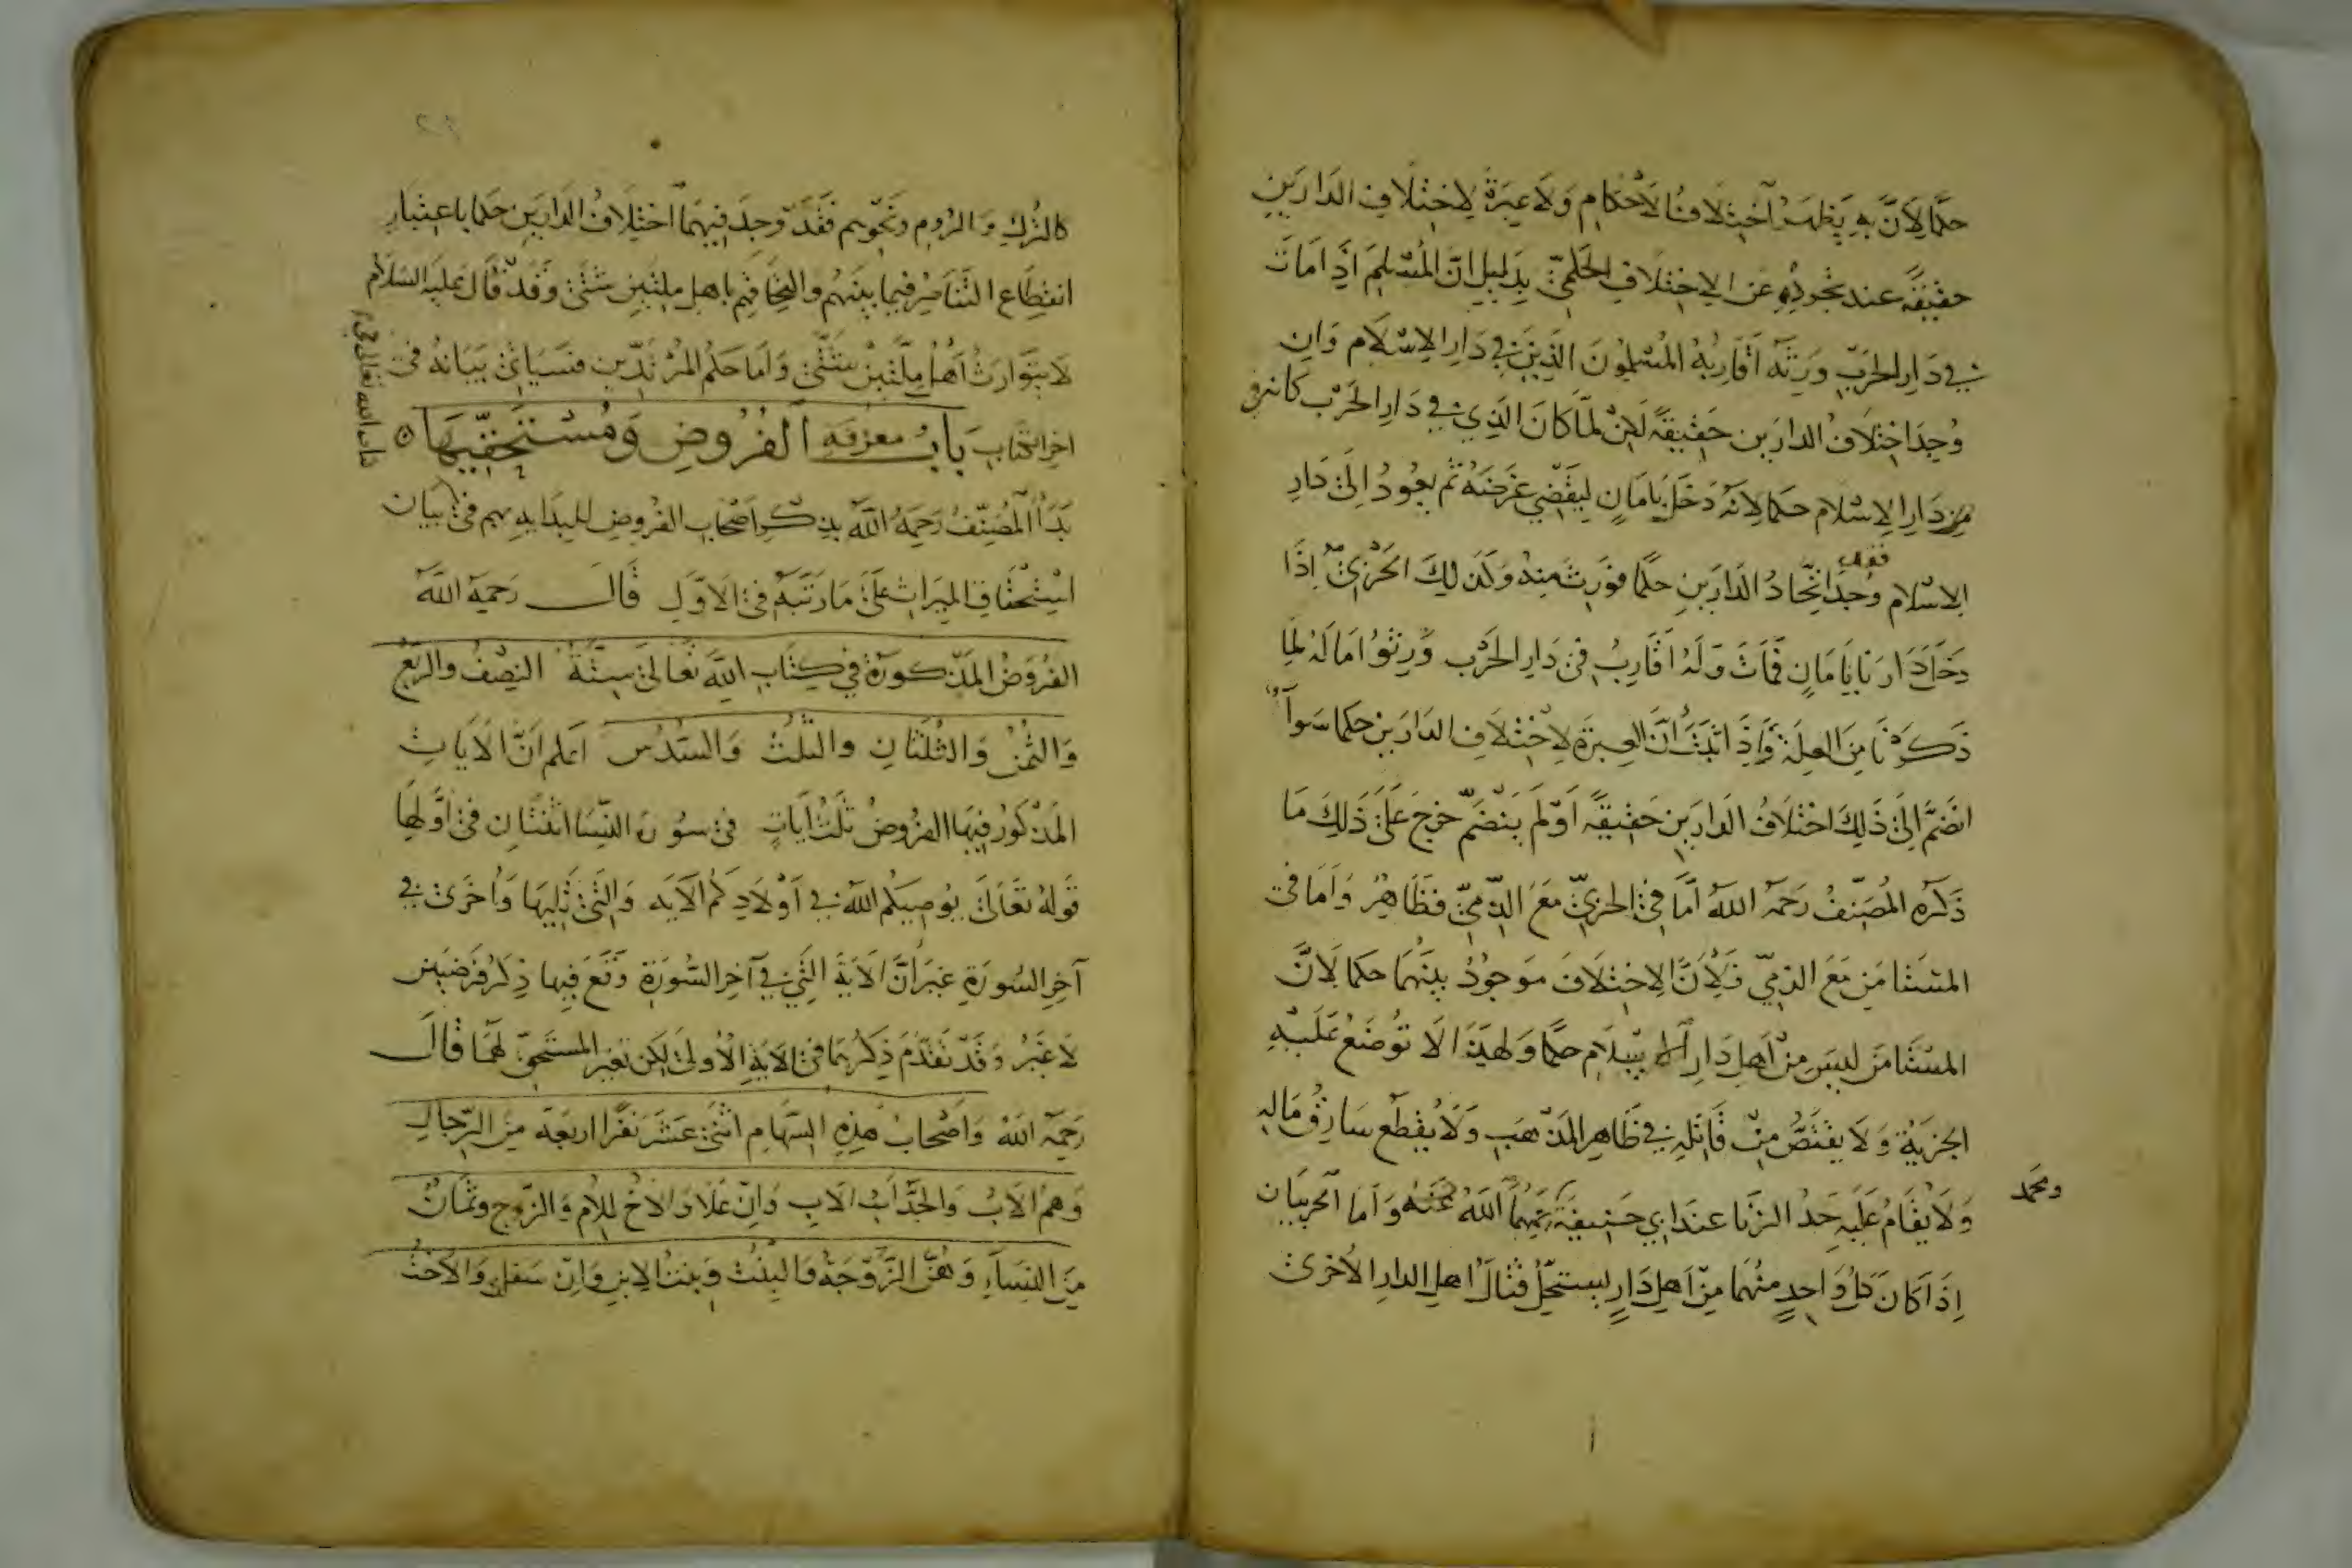 حكما لان به يظهر اختلاف الاحكام ولا عبرة لاختلاف الدارين
حقيقة عند تجرده عن الاختلاف الحكمي بدليل ان المسلم اذا مات
في دار الحرب ورثه اقاربه المسلمون الذين في دار الاسلام وان
وجد اختلاف الدارين حقيقة لكن لما كان الذي في دار الحرب كانه في
من دار الاسلام حكما لانه دخل بامان ليقضي غرضه ثم يعود الى دار
الاسلام فقد وجد اتحاد الدارين حكما فورث منه وكذلك الحربي اذا
دخل دارنا بامان فمات وله اقارب في دار الحرب ورثوا ماله لما
ذكرنا من العلة واذا ثبت ان العبرة لاختلاف الدارين حكما سواء
انضم الى ذلك اختلاف الدارين حقيقة او لم ينضم خرج على ذلك ما
ذكره المصنف رحمه الله اما في الحربي مع الذمي فظاهر واما في
المستامن مع الذمي فلان الاختلاف موجود بينهما حكما لان
المستامن ليس من اهل دار الاسلام حكما ولهذا لا توضع عليه
الجزية ولا يقتص من قاتله في ظاهر المذهب ولا يقطع سارق ماله
ولا يقام عليه حد الزنا عند ابي حنيفة ومحمد رحمهما الله واما الحربيان
اذا كان كل واحد منهما من اهل دار يستحل قتال اهل الدار الاخرى
كالترك والروم ونحوهم فقد وجد فيهما اختلاف الدارين حكما باعتبار
انقطاع التناصر فيما بينهم والتحاقهم باهل ملتين شتى وقد قال عليه السلام
لا يتوارث اهل ملتين شتى واما حكم المرتدين فسياتي بيانه في
اخر الكتاب ان شاء الله تعالى باب معرفة الفروض ومستحقيها
بدا المصنف رحمه الله بذكر اصحاب الفروض للبداية بهم في بيان
استحقاق الميراث على ما رتبه في الاول قال رحمه الله
الفروض المذكورة في كتاب الله تعالى ستة النصف والربع
والثمن والثلثان والثلث والسدس اعلم ان الايات
المذكور فيها الفروض ثلث ايات في سورة النسا اثنتان في اولها
قوله تعالى يوصيكم الله في اولادكم الاية والتي تليها واخرى في
آخر السورة غير ان الاية التي في آخر السورة وقع فيها ذكر فرضين
لا غير وقد تقدم ذكرهما في الاية الاولى لكن تغير المستحق لهما قال
رحمه الله واصحاب هذه السهام اثنى عشر نفرا اربعة من الرجال
وهم الاب والجد اب الاب وان علا والاخ للام والزوج وثمان
من النساء وهن الزوجة والبنت وبنت الابن وان سفل والاخت